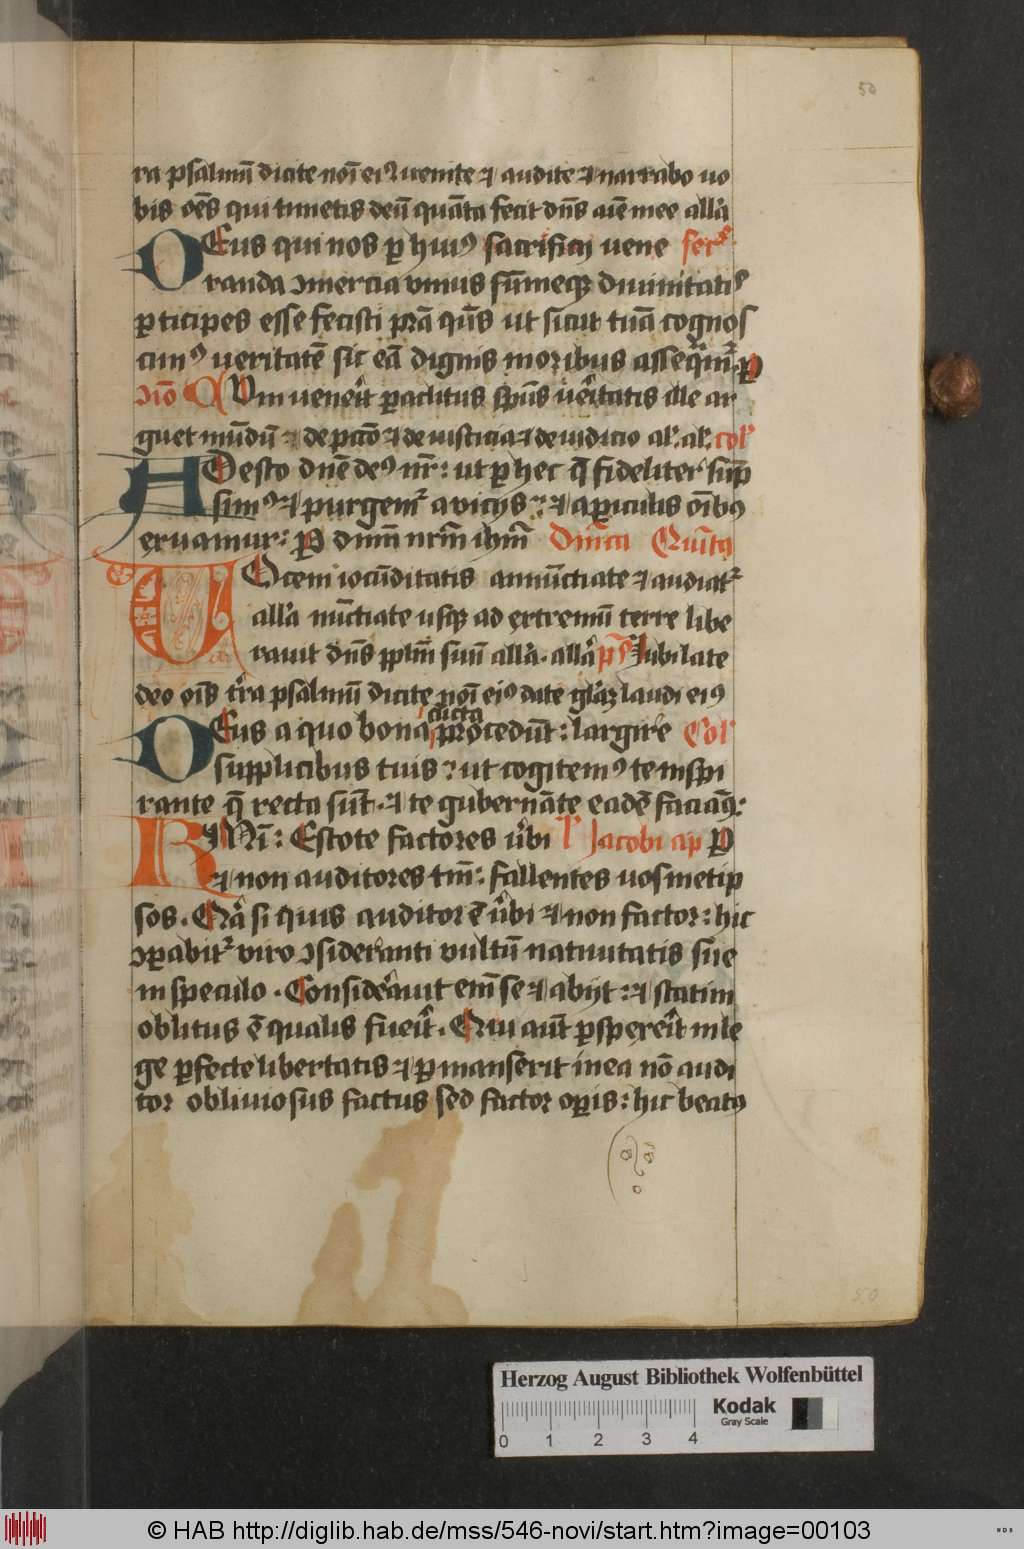 50
ra psalmū dicite noī eiꝰ uenite ⁊ audite ⁊ narrabo uo
bis oēs qui timetis deū quāta fecit dn̄s aīe mee allā
DEus qui nos ꝑ huiꝰ sacrificij uene secᷓ
randa ɔmercia vnius sūmeqꝫ diuinitatiꝰ
ꝑticipes esse fecisti p̄ta q̄s ut sicut tuā cognos
cimꝰ ueritatē sic eā dignis moribus asseqm̄ᷣ ꝑ
ɔīo Cum uenerit ꝑaclitus sp̄us ueritatis ille ar
guet mūdū de pctō ⁊ de iusticia ⁊ de iudicio al' al' col'
ADesto dn̄e deꝰ nr̄ : ut ꝑ hec q̄ fideliter sūp
simꝰ ⁊ purgemᷣ a vicijs : ⁊ a ꝑiculis oībꝰ
eruamur : ꝑ dnm̄ nrm̄ ihm̄ Dnīca Quīta
VOcem iocūditatis annūctiate ⁊ audiatᷣ
allā nūctiate usqꝫ ad extremū terre libe
rauit dn̄s pplm̄ suū allā . allā ps̄ Jubilate
deo oīs t̄ra psalmū dicite noī eiꝰ date glāꝫ laudi eiꝰ
cūcta
DEus a quo bona procedūt : largire Col'
supplicibus tuis : ut cogitemꝰ te inspi
rante q̄ recta sūt . ⁊ te gubernāte eadē faciaꝰ :
KMī : Estote factores u̇bi l' Jacobi ap
⁊ non auditores tm̄ : fallentes uosmetip
sos . Qȧ si quis auditor ē u̇bi ⁊ non factor : hic
ɔꝑabitᷣ viro ɔsideranti vultū natiuitatis sue
in speculo . Considerauit em̄ se ⁊ abijt : ⁊ statim
oblitus ē qualis fuerit . Qui aūt ꝑspexerit in le
ge ꝑfecte libertatis ⁊ ꝑmanserit in ea nō audi
tor obliuiosus factus sed factor oꝑis : hic beatꝰ
50
Herzog August Bibliothek Wolfenbüttel
0 1 2 3 4
Kodak
Gray Scale
© HAB http://diglib.hab.de/mss/546-novi/start.htm?image=00103